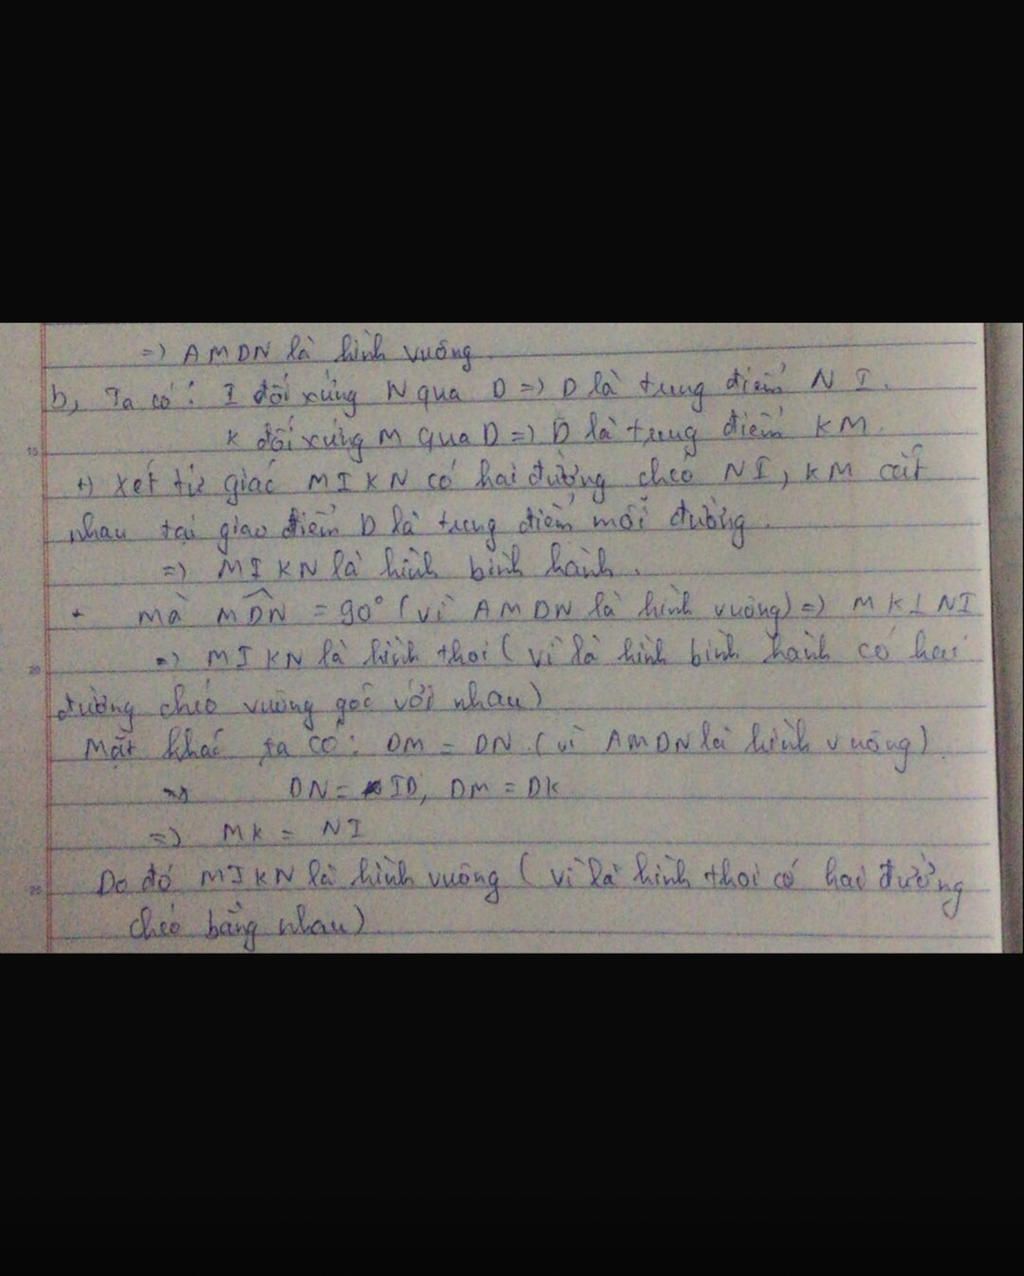 =) AMDN là hình vuông.
b, Ta có: I đối xứng N qua D =) D là trung điểm N I.
K đối xứng M qua D =) D là trung điểm KM.
15
+) Xét tứ giác MIKN có hai đường chéo NI, KM cắt
nhau tại giao điểm D là trung điểm mỗi đường.
=) MIKN là hình bình hành.
mà MDN = 90° (vì AMDN là hình vuông) =) MK⊥NI
=) MIKN là hình thoi (vì là hình bình hành có hai
20
đường chéo vuông góc với nhau)
Mặt khác ta có: DM = DN (vì AMDN là hình vuông)
DN = ID, DM = DK
=) MK = NI
Do đó MIKN là hình vuông (vì là hình thoi có hai đường
25
chéo bằng nhau)